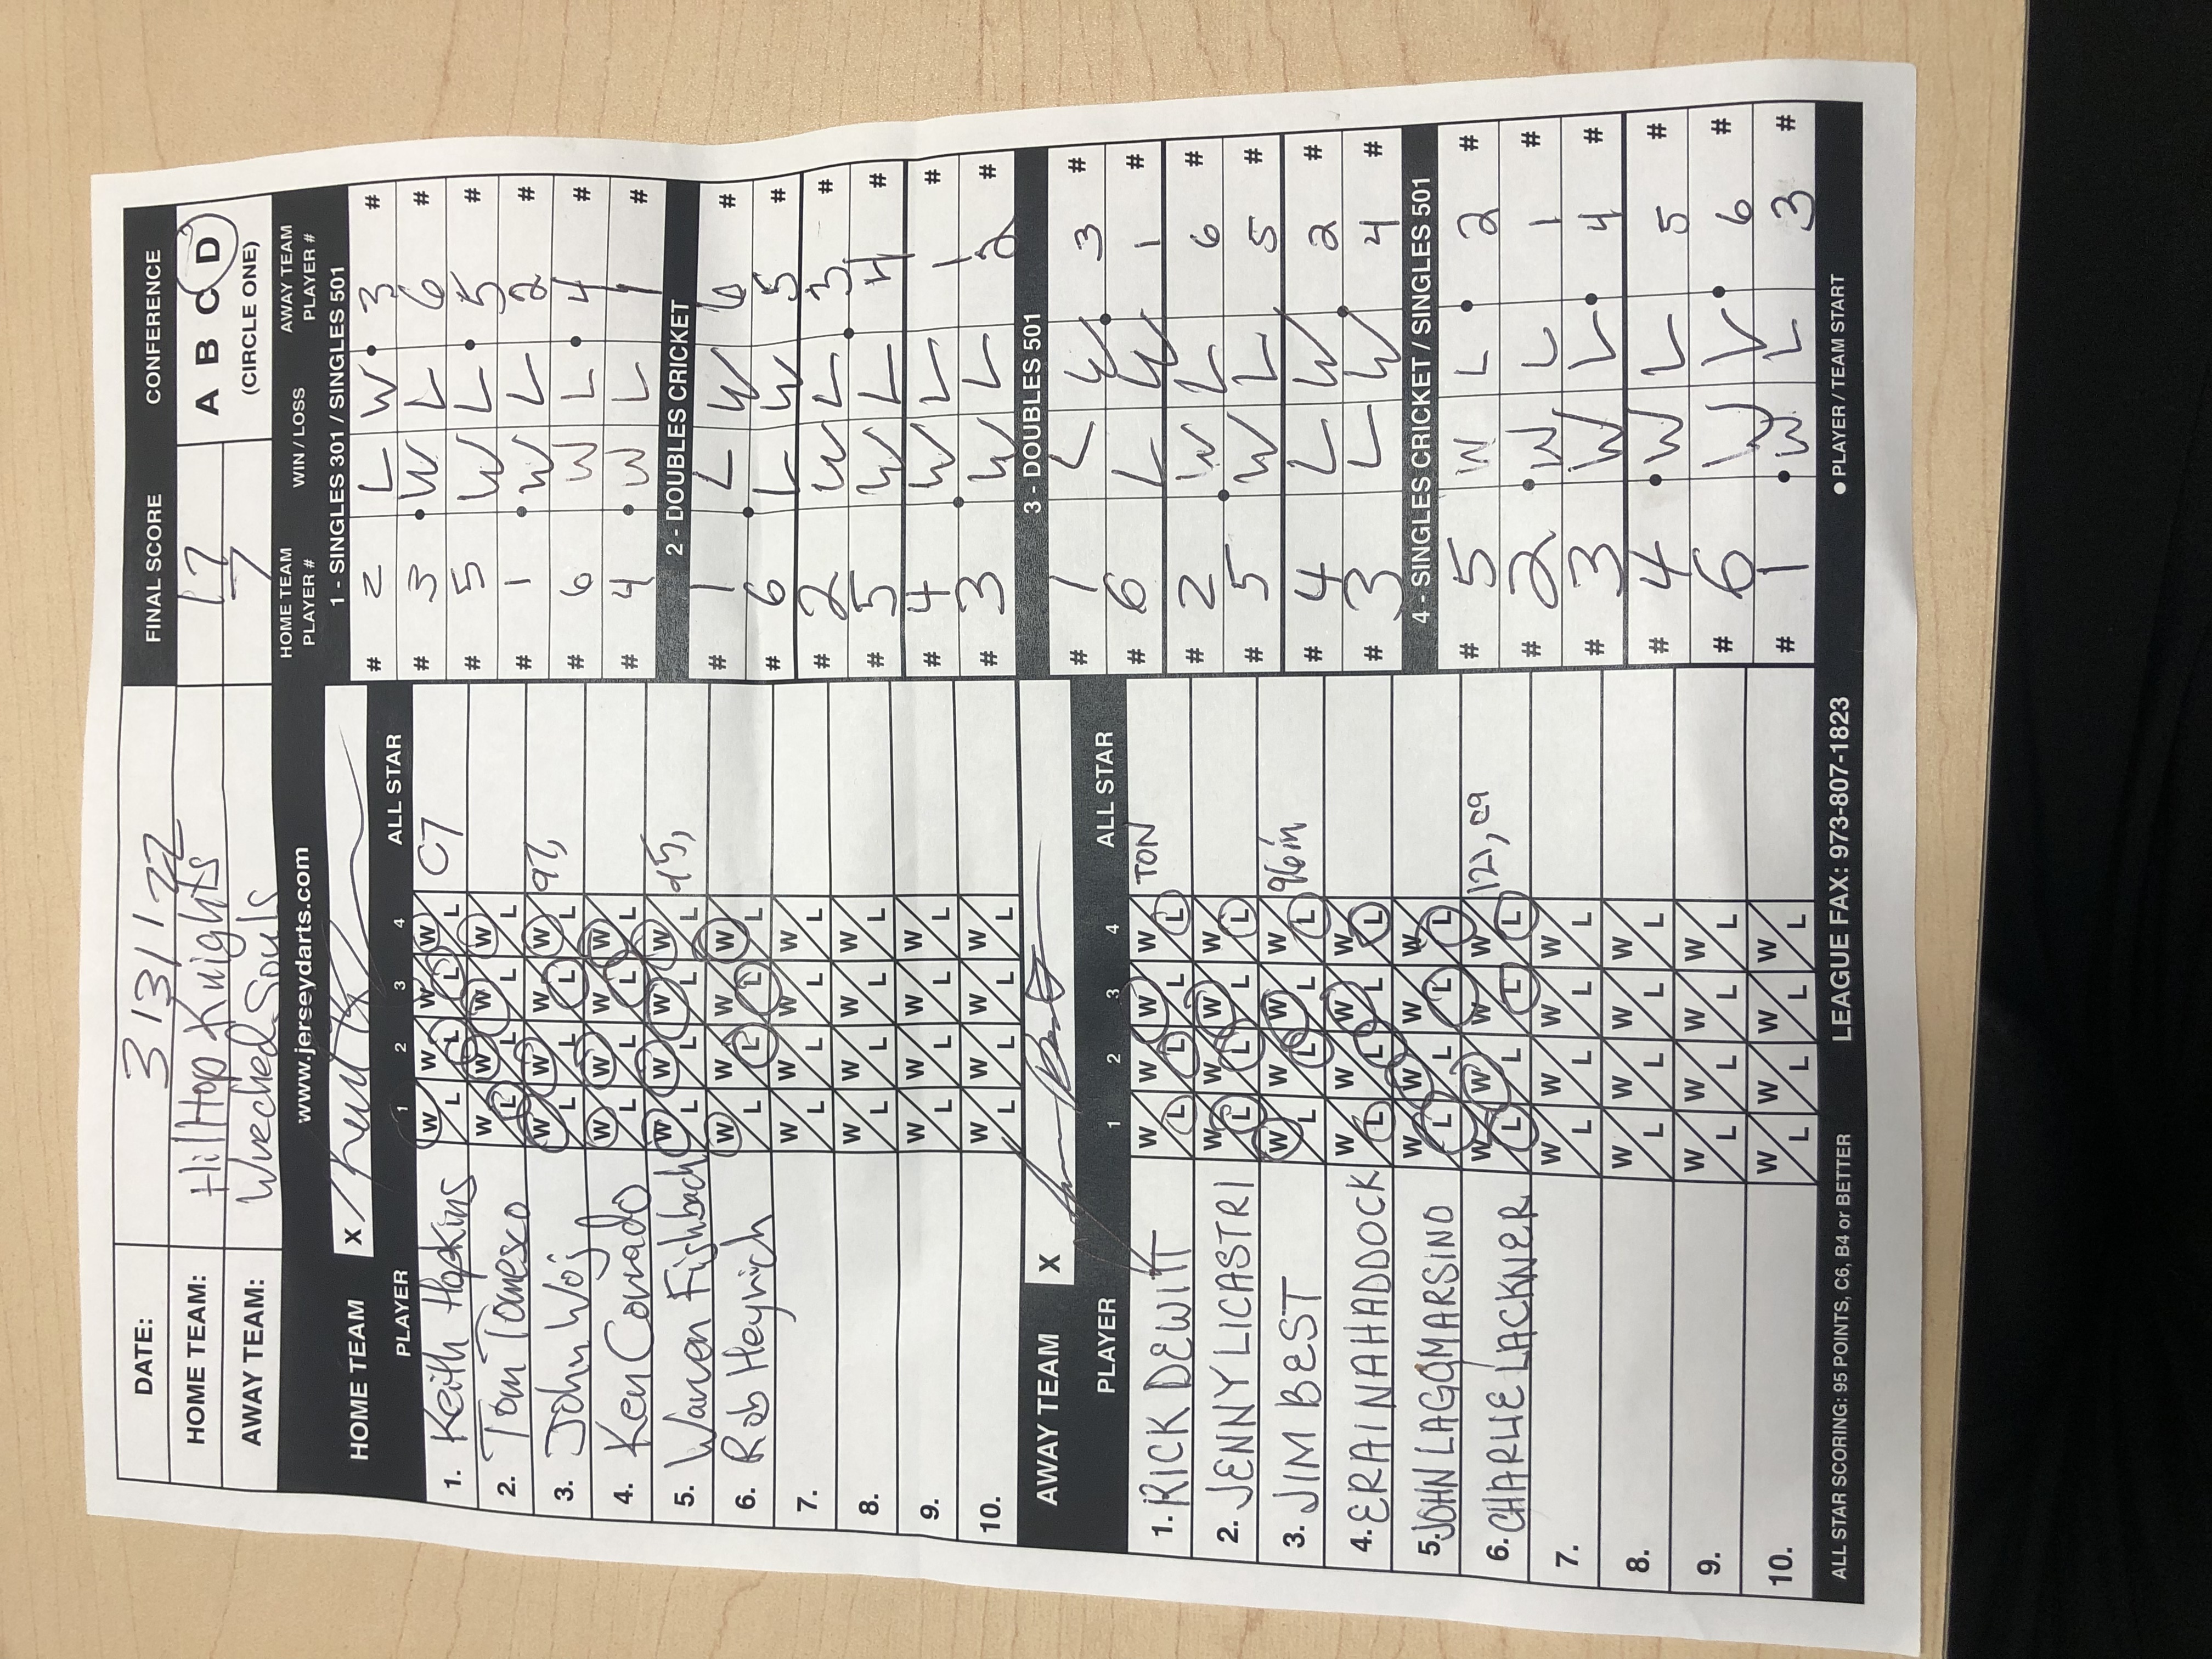 DATE: 3/31/22 FINAL SCORE CONFERENCE
HOME TEAM: HillTop Knights 17 A B C D
AWAY TEAM: Wreched Souls 7 (CIRCLE ONE)
www.jerseydarts.com
HOME TEAM X
PLAYER 1 2 3 4 ALL STAR
1. Keith Hopkins W L W L W L W L C7
2. Tom Tomesco W L W L W L W L
3. John Woj W L W L W L W L 97,
4. Ken Conrado W L W L W L W L
5. Warren Fishbach W L W L W L W L 95,
6. Rob Heyrich W L W L W L W L
7. W L W L W L W L
8. W L W L W L W L
9. W L W L W L W L
10. W L W L W L W L
AWAY TEAM X
PLAYER 1 2 3 4 ALL STAR
1. RICK DEWITT W L W L W L W L TON
2. JENNY LICASTRI W L W L W L W L
3. JIM BEST W L W L W L W L 96in
4. ERAINA HADDOCK W L W L W L W L
5. JOHN LAGOMARSINO W L W L W L W L
6. CHARLIE LACKNER W L W L W L W L 121, C9
7. W L W L W L W L
8. W L W L W L W L
9. W L W L W L W L
10. W L W L W L W L
HOME TEAM PLAYER # WIN / LOSS AWAY TEAM PLAYER #
1 - SINGLES 301 / SINGLES 501
# 2 L W 3 #
# 3 W L 6 #
# 5 W L 5 #
# 1 W L 2 #
# 6 W L 4 #
# 4 W L 1 #
2 - DOUBLES CRICKET
# 1 L W 6 #
# 6 L W 5 #
# 2 W L 3 #
# 5 W L 4 #
# 4 W L 1 #
# 3 W L 2 #
3 - DOUBLES 501
# 1 L W 3 #
# 6 L W 1 #
# 2 W L 6 #
# 5 W L 5 #
# 4 L W 2 #
# 3 L W 4 #
4 - SINGLES CRICKET / SINGLES 501
# 5 W L 2 #
# 2 W L 1 #
# 3 W L 4 #
# 4 W L 5 #
# 6 W L 6 #
# 1 W L 3 #
ALL STAR SCORING: 95 POINTS, C6, B4 or BETTER LEAGUE FAX: 973-807-1823 ● PLAYER / TEAM START